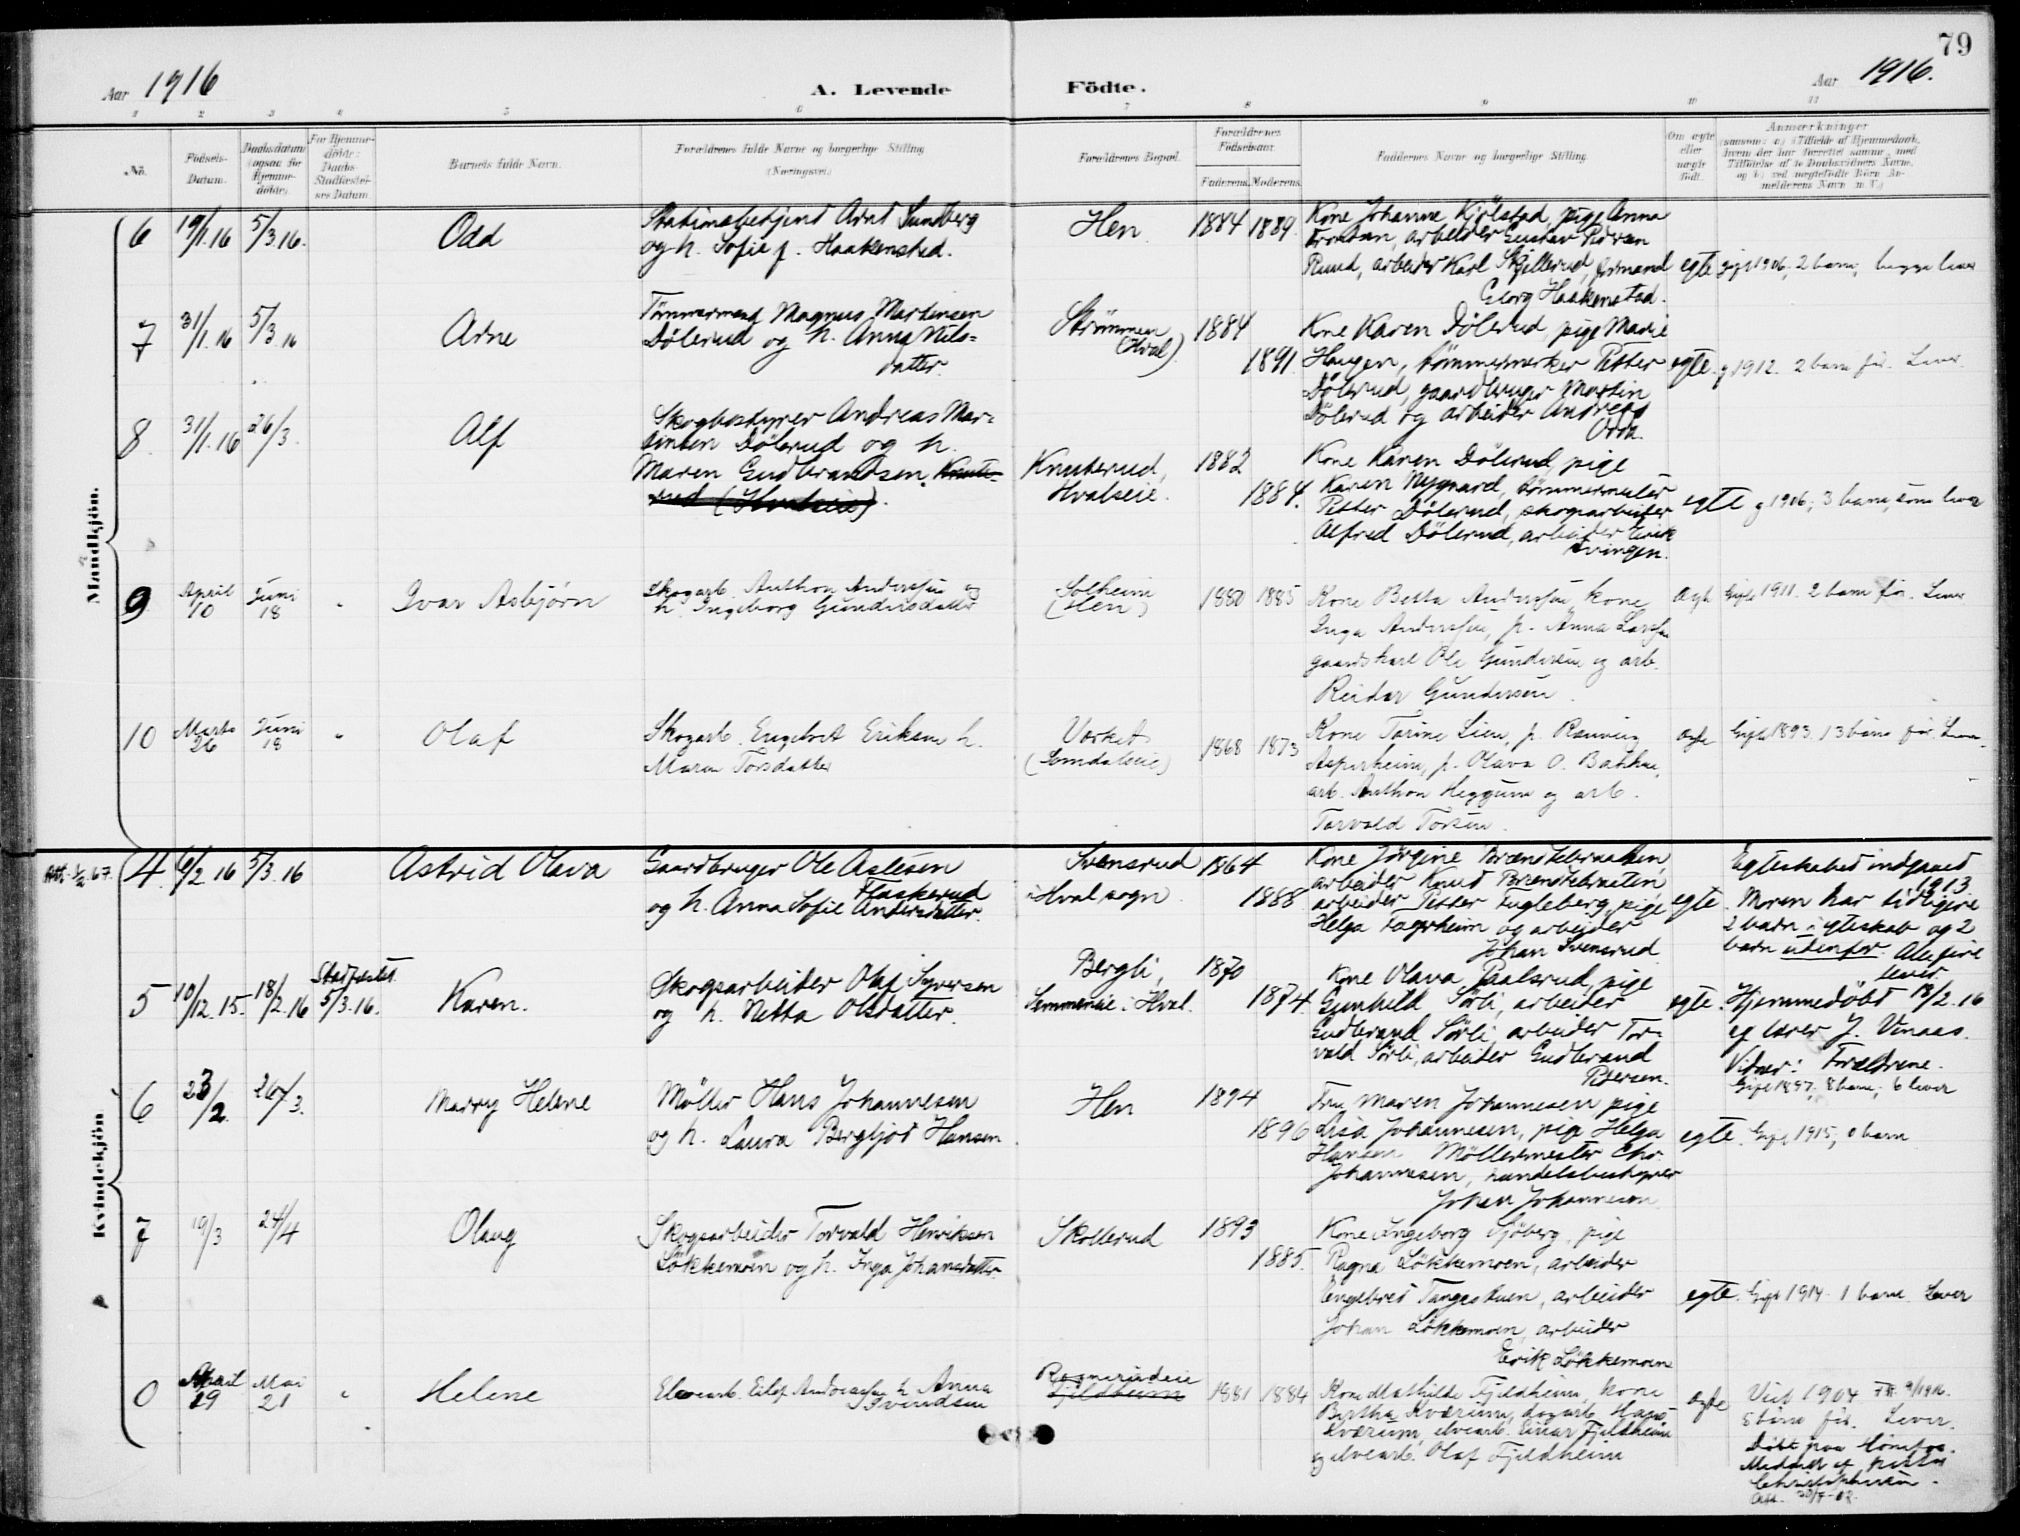 79
Aar 1916
A. Levende
Födte.
Aar 1916.
1 2 3 4 5 6 7 8 9 10 11
No.
Födsels-
Datum.
Daabsdatum
(ogsaa for
Hjemme-
döbte).
For Hjemme-
döbte:
Daabs-
Stadfæstel-
ses Datum.
Barnets fulde Navn.
Forældrenes fulde Navne og borgerlige Stilling
(Næringsvei.)
Forældrenes Bopæl.
Forældrenes
Födselsaar.
Faderens. Moderens.
Faddernes Navne og borgerlige Stilling
Om ægte
eller
uægte
født.
Anmærkninger
Mandkjön.
6 19/1.16 5/3.16. Odd
Stationsbetjent Arnt Sundberg
og h. Sofie f. Haakenstad.
Hen 1884 1889.
Kone Johanne Kjölstad, pige Anna
Trondsen, arbeider Gustav Pedersen
Ruud, arbeider Karl Skjellerud, formand
Georg Haakenstad.
egte gift 1906, 2 barn, begge lever
7 31/1.16 5/3.16 Arne
Tømmermand Magnus Martinsen
Dölerud og h. Anna Nils-
datter.
Strömmen
(Hval).
1884
1891.
Kone Karen Dölerud, pige Marie
Haugen, tömmermerker Petter
Dölerud, gaardbruger Martin
Dölerud og arbeider Andreas
Odda.
egte. g 1912. 2 barn før. Lever.
8. 31/1.16 26/3. Alf
Skogbestyrer Andreas Mar-
tinsen Dölerud og h.
Maren Gudbrandsen, Knute-
rud (Hvalseie).
Knuterud,
Hvalseie.
1882
1884.
Kone Karen Dölerud, pige
Karen Nygaard, tømmermester
Petter Dölerud, skogsarbeider
Alfred Dölerud, arbeider Eirik
Svingen.
egte g 1906; 3 barn, som lever
9 April
10
Juni
18
" Ivar Asbjörn
Skogarb. Anthon Anderssen og
h. Ingeborg Gundersdatter
Solheim
(Hen)
1880 1885
Kone Betta Anderssen, kone
Inga Anderssen, p. Anna Larssen
gaardskarl Ole Gundersen og arb.
Reidar Gundersen.
Ægte Gift 1911. 2 barn før. Lever
10 Marts
26
Juni
18
" Olaf
Skogarb. Engebret Eriksen h.
Maren Torsdatter
Værket
(Somdalseie)
1868 1873
Kone Torine Lien, p. Rønnaug
Asperheim, p. Olava O. Bakken,
arb. Anthon Heggum og arb.
Torvald Torsen.
ægte Gift 1893. 13 barn før. Lever.
Kvindekjön
Att. 67.
4. 6/2.16 5/3.16 Astrid Olava
Gaardbruger Ole Aslesen
Flaskerud
og h. Anna Sofie Andersdatter.
Svensrud
i Hval sogn.
1864
1888
Kone Jörgine Brændebraaten,
arbeider Knut Brændebraaten,
arbeider Petter Fugleberg, pige
Helga Fagerheim og arbeider
Johan Svensrud
egte.
Egteskabet indgaaet
1913.
Moren har tidligere
2 barn i egteskab og 2
barn utenfor. Alle fire
lever.
5 10/12.15. 18/2.16
Stadfestet
5/3.16.
Karen.
Skogsarbeider Olaf Syversen
og h. Netta Olsdatter.
Bergli,
Semmeneie i Hval.
1870
1874.
Kone Olava Paalsrud, pige
Gunhild Sörli, arbeider
Gudbrand Sörli, arbeider Tor-
vald Sörli, arbeider Gudbrand
Petersen.
egte.
Hjemmedöbt 18/2.16
af lærer J. Vinaas.
Vidner: Forældrene.
Gift 1897; 8 barn; 6 lever
6 23/2. 26/3. Marry Helene
Møller Hans Johannesen
og h. Laura Bergljot Hansen.
Hen
1894
1896
Fru Maren Johannesen, pige
Lisa Johannesen, pige Helga
Hansen Møllermester Chr.
Johannesen, handelsbestyrer
Johan Johannesen
egte. Gift 1915, 0 barn
7 19/3 24/4 Olaug
Skogsarbeider Torvald Henriksen
Lökkemoen og h. Inga Johansdatter.
Skollerud
1893
1885.
Kone Ingeborg Sjöberg, pige
Ragna Lökkemoen, arbeider
Engebret Tangestuen, arbeider
Johan Lökkemoen, arbeider
Erik Lökkemoen
egte. Gift 1914. 1 barn. Lever
0 April
29
Mai
21
" Helene
Elvearb. Eilef Anderssen h. Anna
Svendsen
Fjeldheim
1881 1884
Kone Mathilde Fjeldheim, kone
Bertha Kværum, dagarb. Hans
Kværum, elvearb. Einar Fjeldheim
og elvearb. Olaf Fjeldheim
ægte
Viet 1904
5 barn før. Lever.
Døbt paa Hönefos.